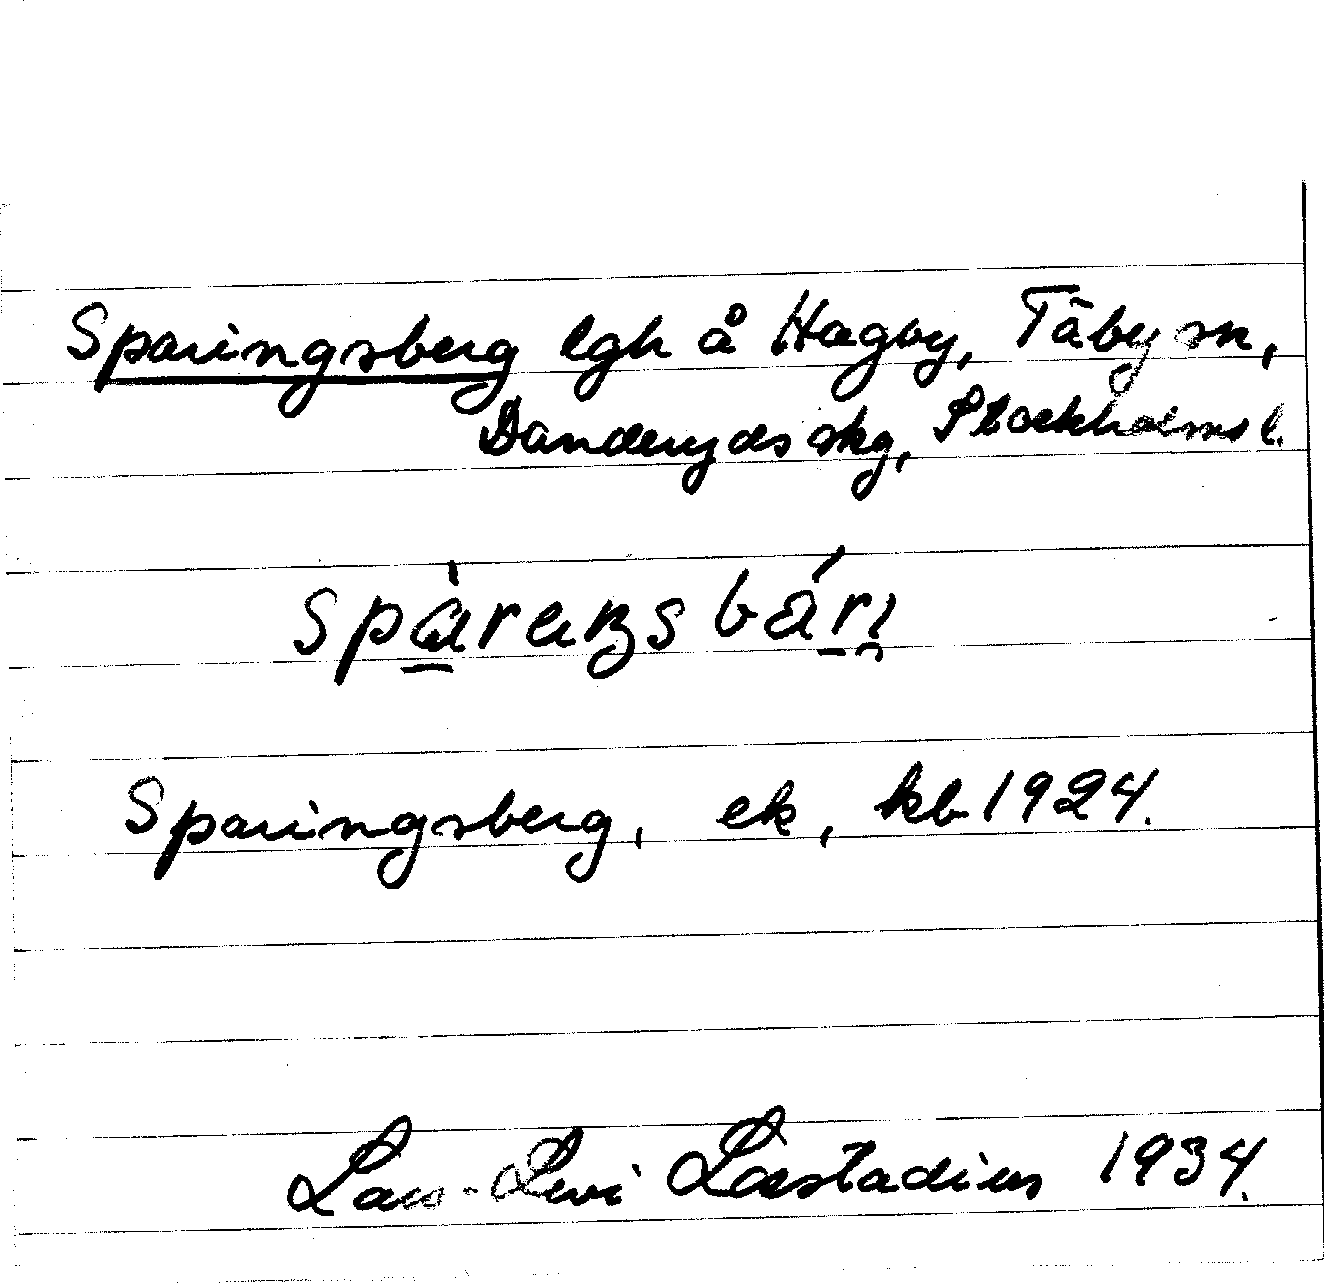 Sparingsberg lgh å Hagby, Täby sn,
Danderyds skg, Stockholms l.
Sparingsberg, ek, kb 1924.
Lars-Levi Læstadius 1934.